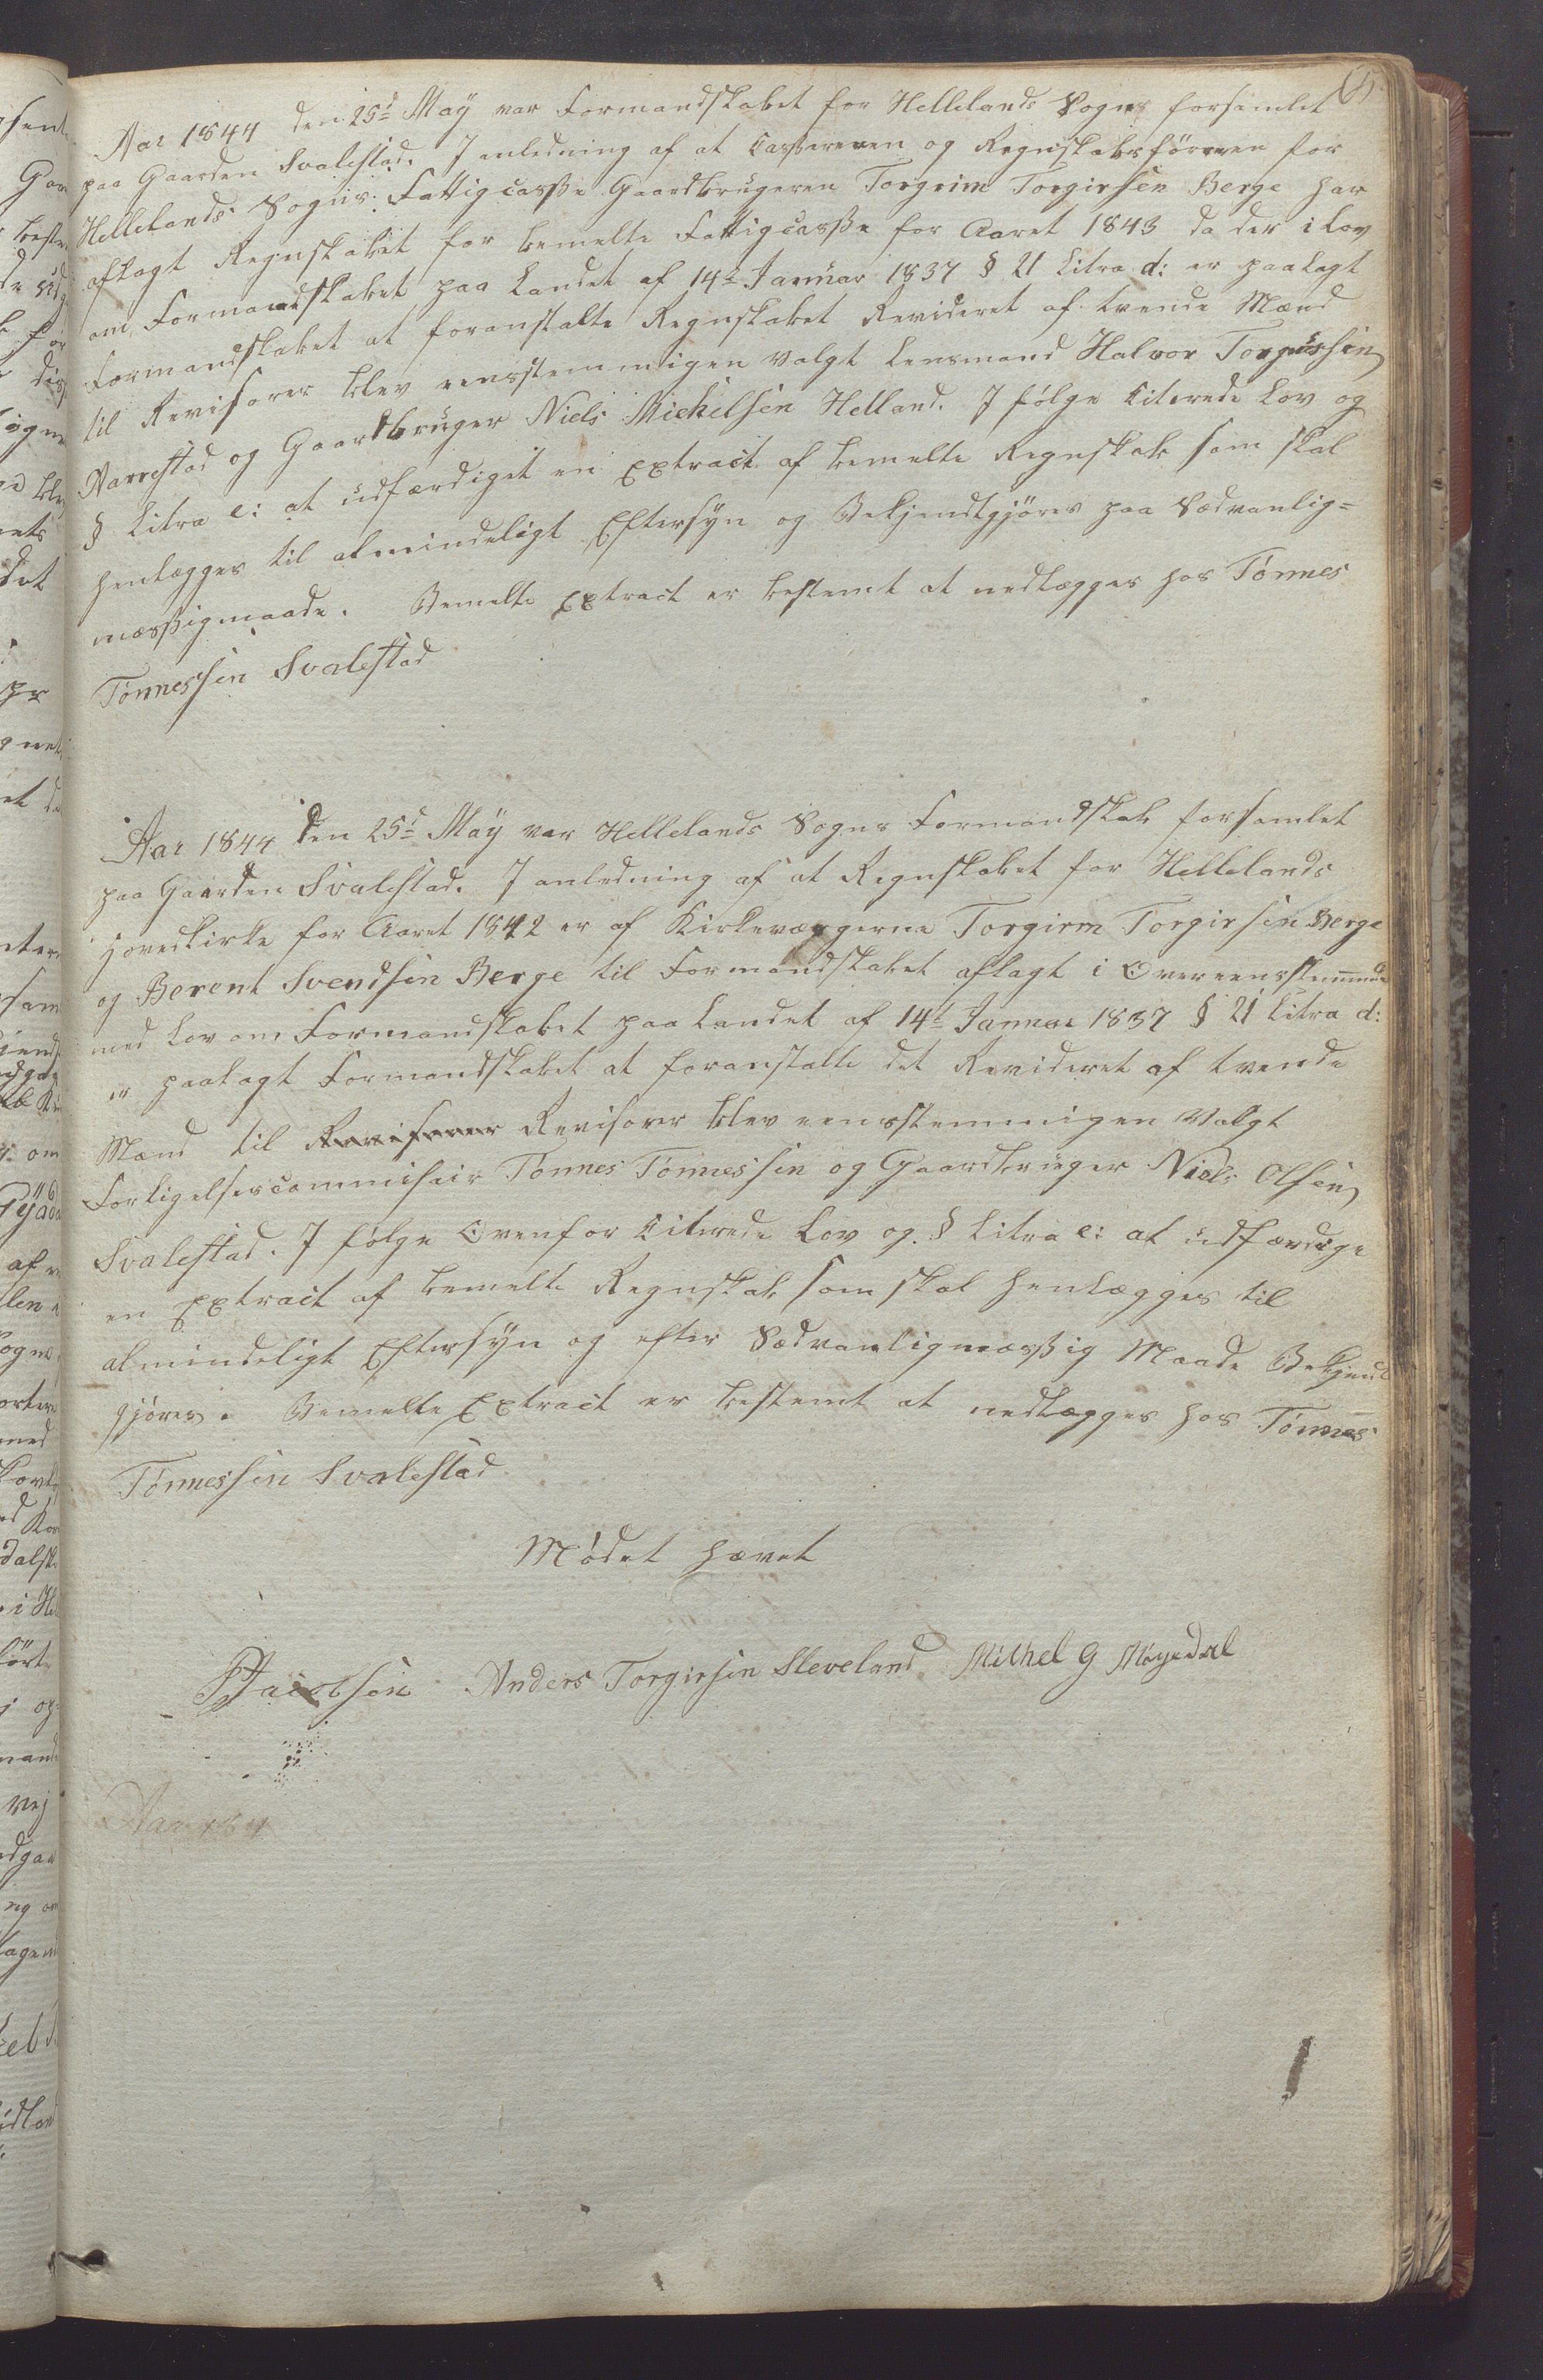 Aar 1844 den 25d May var Formandskabet for Hellelands Sogns forsamlet
paa Gaarden Svalestad. I anledning af at Casßereren og Regnskabsføreren for
Hellelands Sogns Fattigcasße Gaardbrugeren Torgrim Torgirsen Berge har
aflagt Regnskabet for bemelte Fattigcasße for Aaret 1843 da der i Lov
om Formandskabet paa Landet af 14d Januar 1837 § 21 Litra d: er paalagt
Formandskabet at foranstalte Regnskabet Revideret af tvende Mænd
til Revisorer blev eensstemmigen Valgt Lensmand Halvor Torgussen
Aarrestad og Gaardbruger Niels Mickelsen Helland. I følge Citerede Lov og
§ Litra e: at udfærdiget en Extract af bemelte Regnskab som skal
henlægges til almindeligt Eftersyn og Bekjendtgjøres paa Sædvanlig=
mæsßigmaade. Bemelte Extract er bestemt at nedlægges hos Tønnes
Tønnessen Svalestad
Aar 1844 den 25d May var Hellelands Sogns Formandskab forsamlet
paa Gaarden Svalestad. I anledning af at Regnskabet for Hellelands
hovedkirke for Aaret 1842 er af Kirkeværgerne Torgirm Torgirsen Berge
og Berent Svendsen Berge til Formandskabet aflagt i Overeensstemmende
med Lov om Formandskabet paa Landet af 14d Januar 1837 § 21 Litra d:
er paalagt Formandskabet at foranstalte det Revideret af tvende
Mænd til Revisorer Revisorer blev eensstemmigen Valgt
Forligelsescommisair Tønnes Tønnessen og Gaardbruger Niels Olsen
Svalestad. I følge Ovenfor Citerede Lov og § Litra e: at udfærdige
en Extract af bemelte Regnskab som skal henlægges til
almindeligt Eftersyn og efter Sædvanligmæsßig Maade Bekjendt
gjøres. Bemelte Extract er bestemt at nedlægges hos Tønnes
Tønnessen Svalestad
Mødet hævet
Jacobsen Anders Torgirsen Sleveland Mikhel G Møgedal
Aar 184